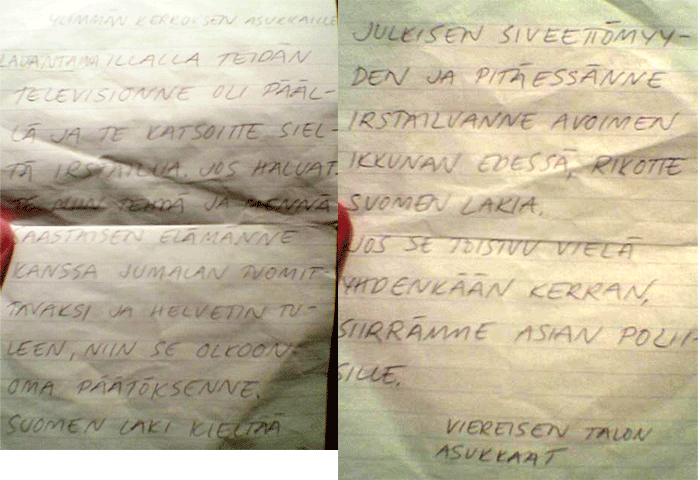 YLIMMÄN KERROKSEN ASUKKAILLE
LAUANTAI-ILLALLA TEIDÄN
TELEVISIONNE OLI PÄÄL-
LÄ JA TE KATSOITTE SIEL-
TÄ IRSTAILUA. JOS HALUAT-
TE NIIN TEHDÄ JA MENNÄ
SAASTAISEN ELÄMÄNNE
KANSSA JUMALAN TUOMIT-
TAVAKSI JA HELVETIN TU-
LEEN, NIIN SE OLKOON
OMA PÄÄTÖKSENNE.
SUOMEN LAKI KIELTÄÄ
JULKISEN SIVEETTÖMYY-
DEN JA PITÄESSÄNNE
IRSTAILUANNE AVOIMEN
IKKUNAN EDESSÄ, RIKOTTE
SUOMEN LAKIA.
JOS SE TOISTUU VIELÄ
YHDENKÄÄN KERRAN,
SIIRRÄMME ASIAN POLII-
SILLE.
VIEREISEN TALON
ASUKKAAT